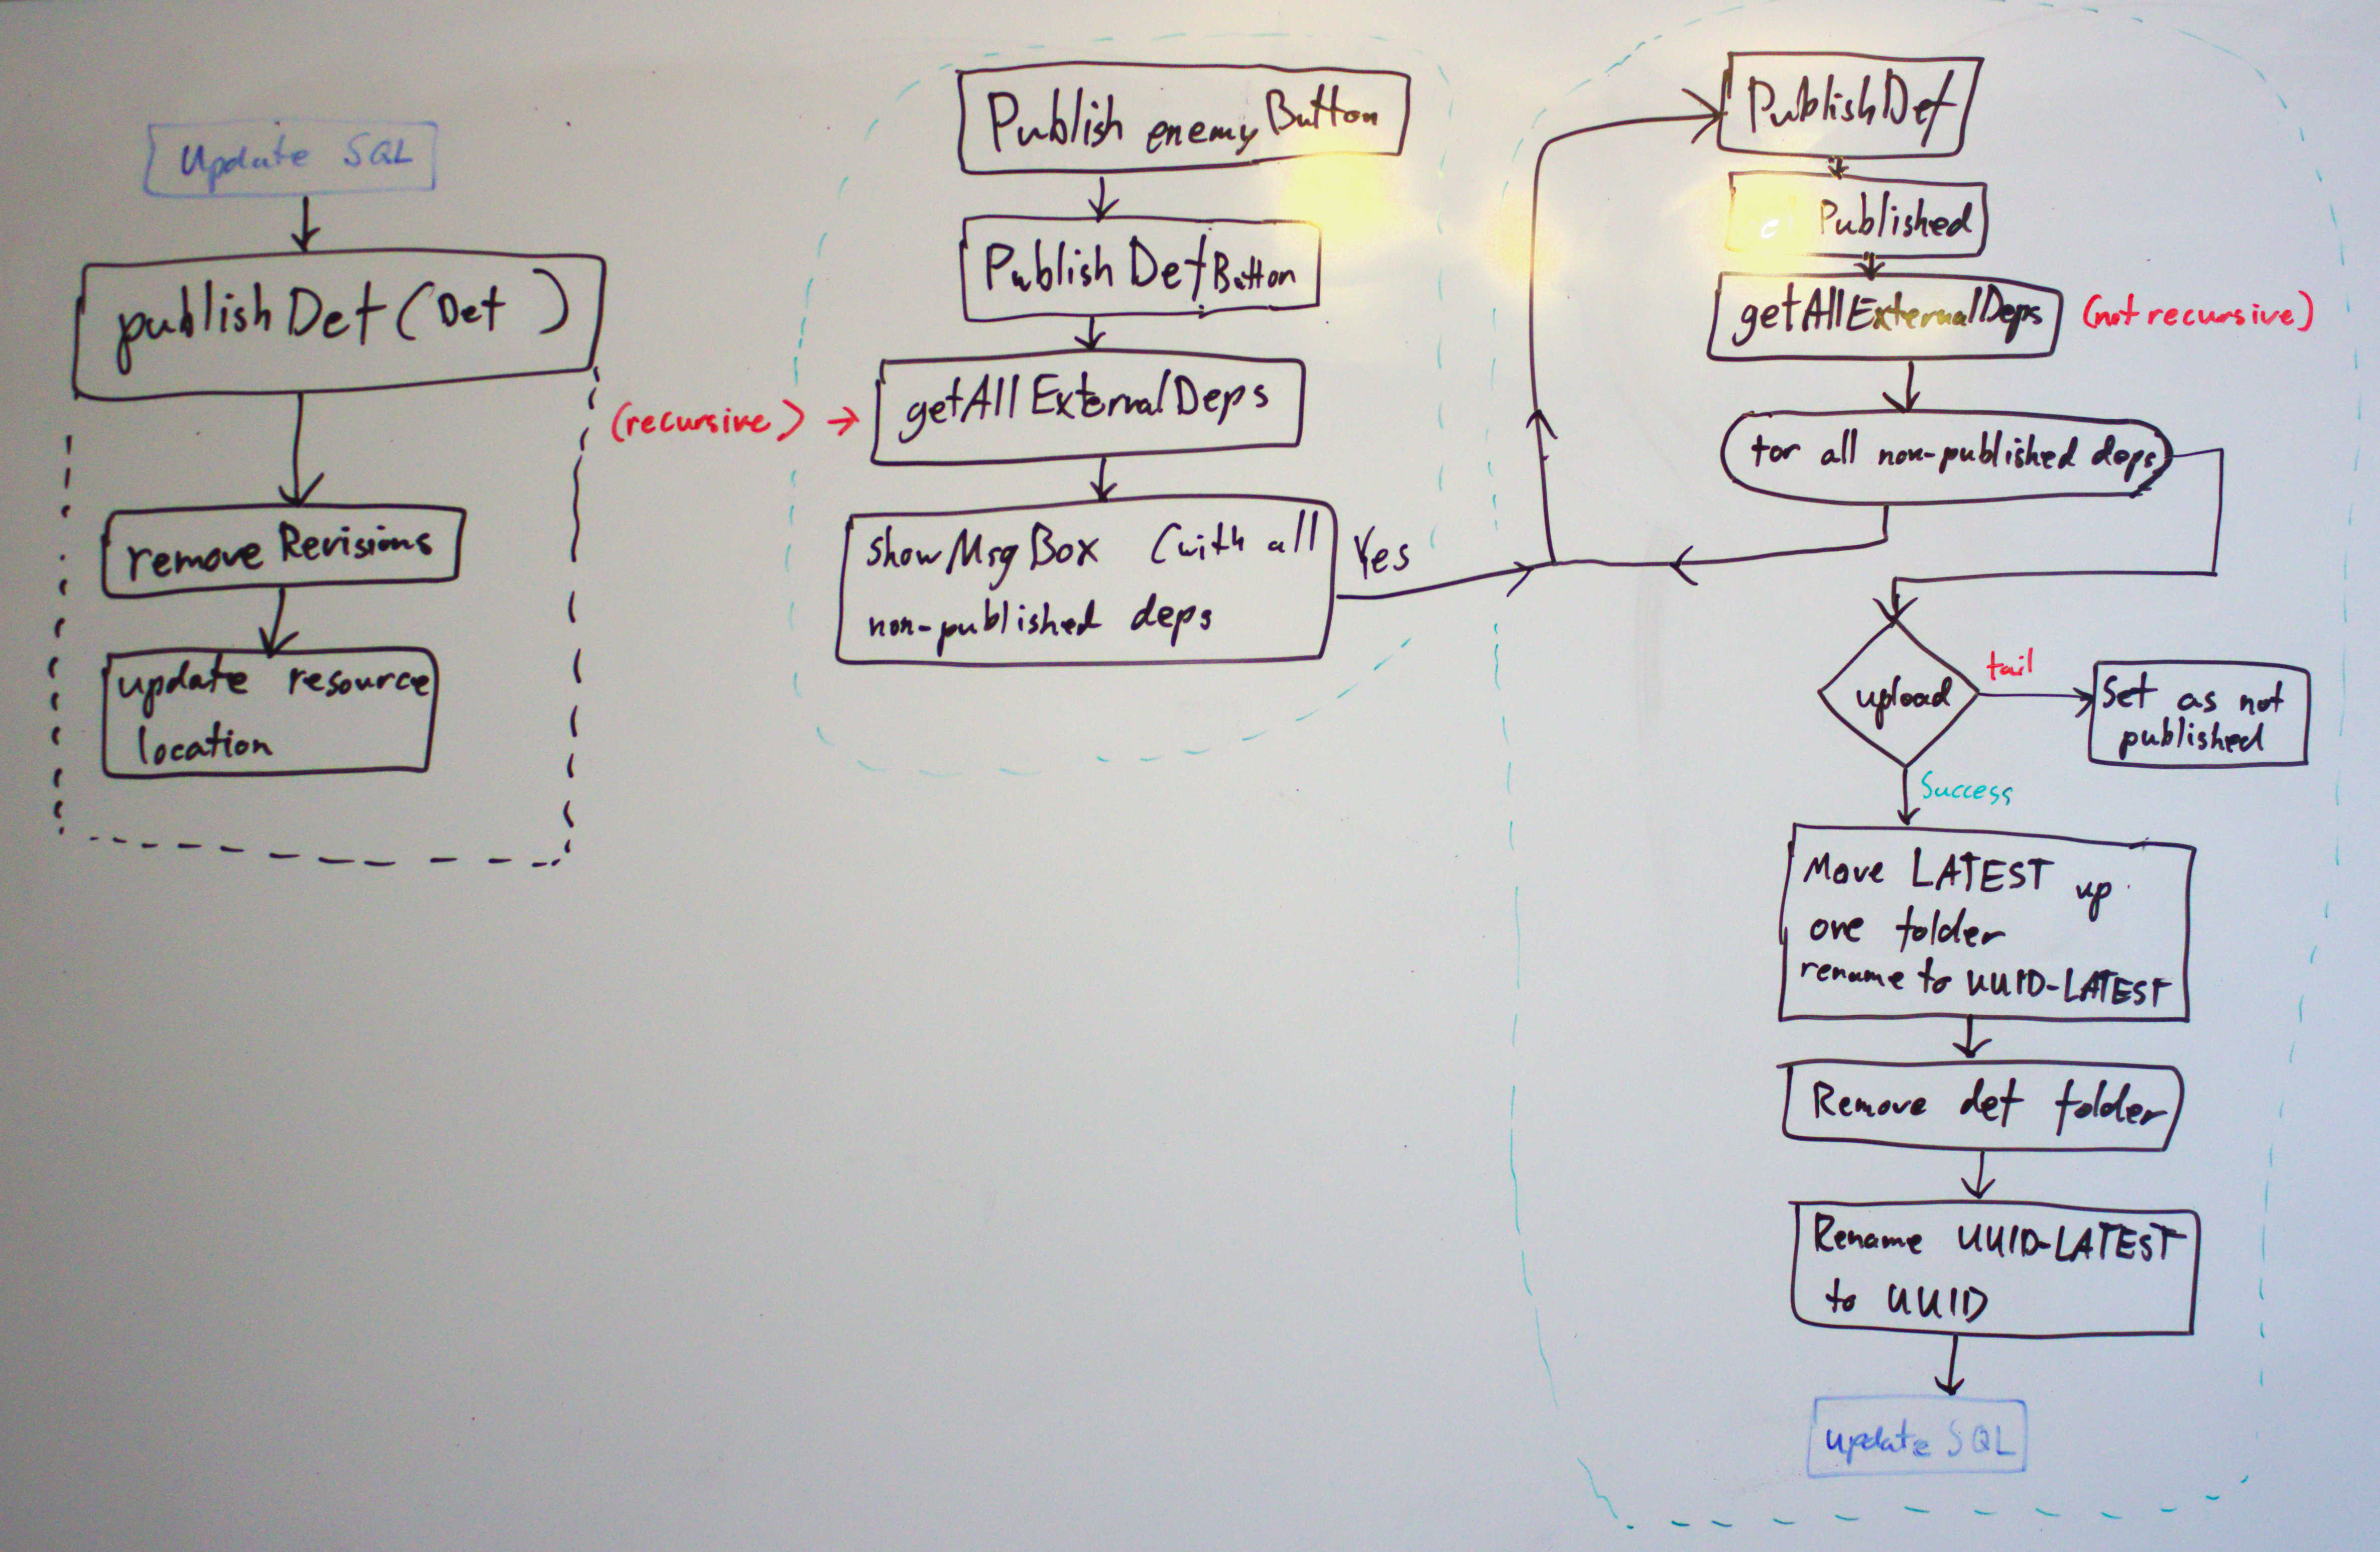 Update SQL
publishDef(Def )
remove Revisions
update resource
location
Publish enemy Button
Publish Def Button
(recursive) → getAllExternalDeps
showMsgBox (with all
non-published deps
Yes
PublishDef
Published
getAllExternalDeps (not recursive)
for all non-published deps
upload
fail
Set as not
published
Success
Move LATEST up
one folder
rename to UUID-LATEST
Remove def folder
Rename UUID-LATEST
to UUID
update SQL